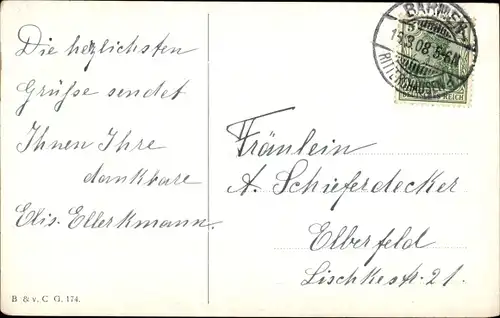 Die herzlichsten
Grüsse sendet
Ihnen Ihre
dankbare
Elis. Ellerkmann.
B & v. C G. 174.
BARMEN
RITTERSHAUSEN
REICH
Fräulein
A. Schieferdecker
Elberfeld
Lischkestr. 21.